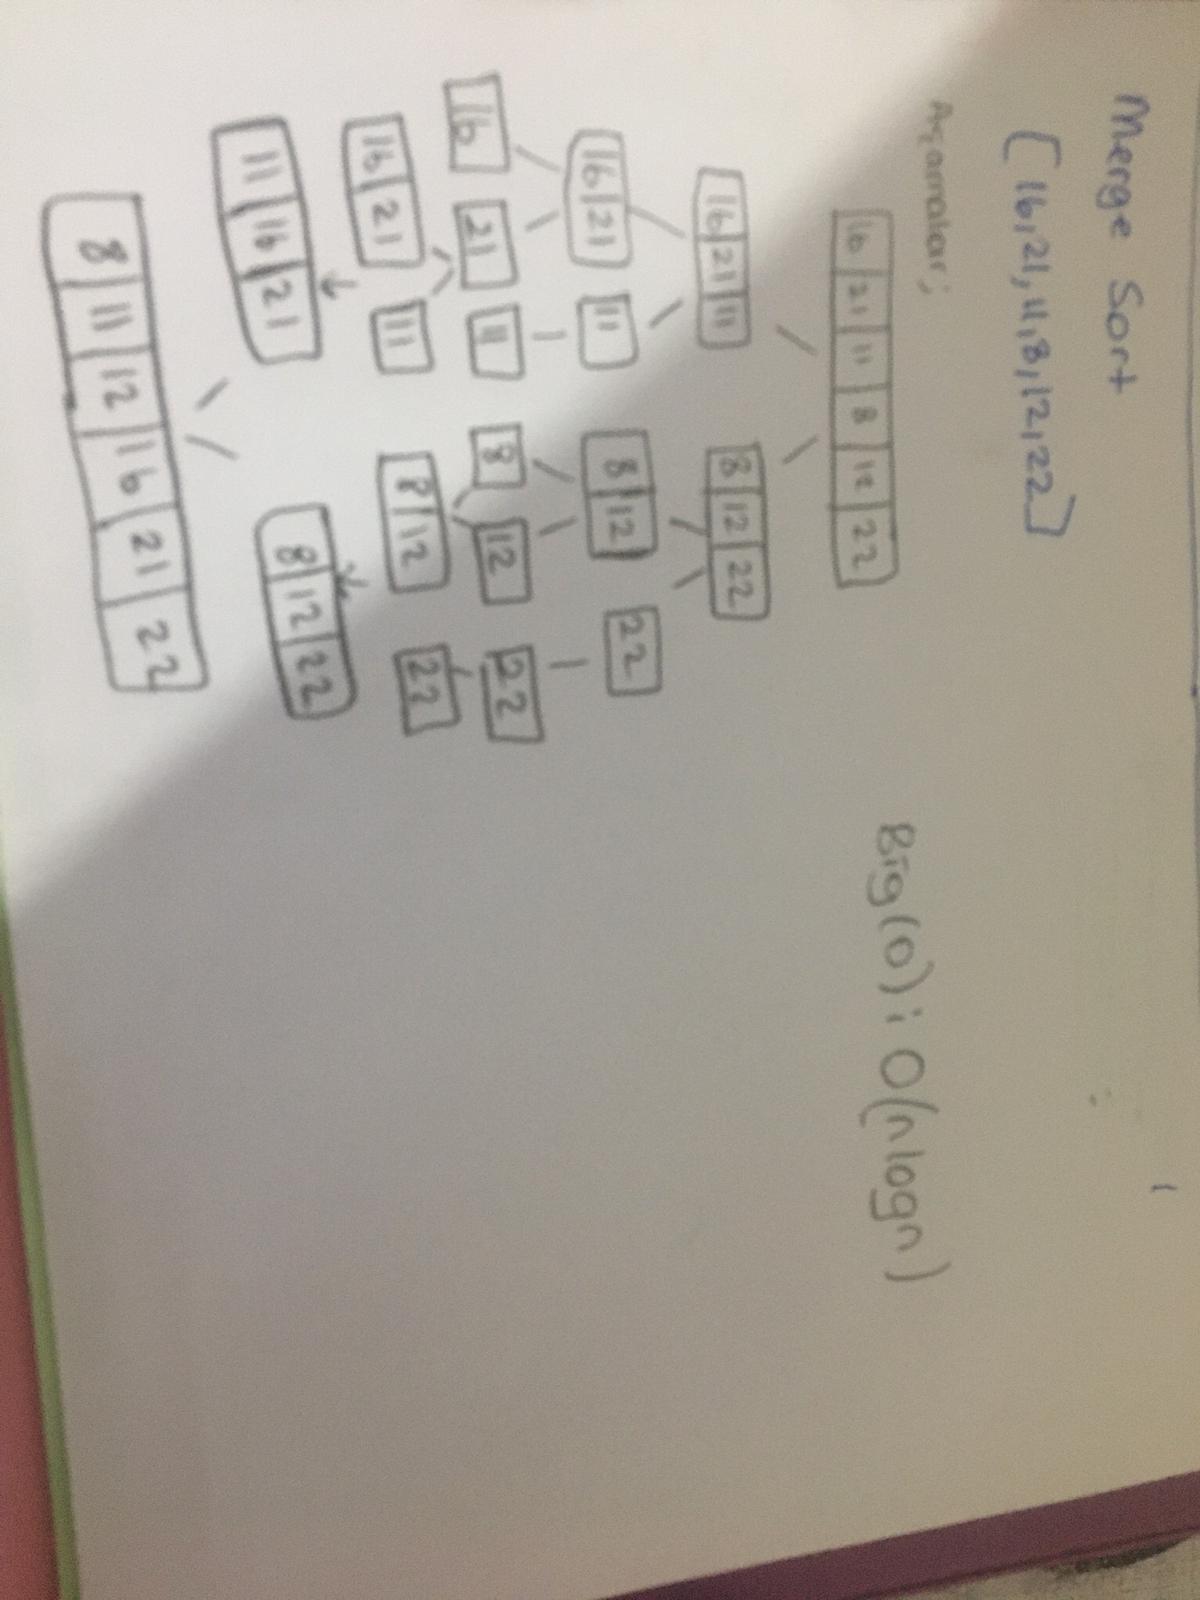 Merge Sort
[16,21,11,8,12,22]
Aşamalar;
16 21 11 8 12 22
Big(O): O(nlogn)
16 21 11 8 12 22
16 21 11 8 12 22
16 21 11 8 12 22
16 21 11 8 12 22
11 16 21 8 12 22
8 11 12 16 21 22